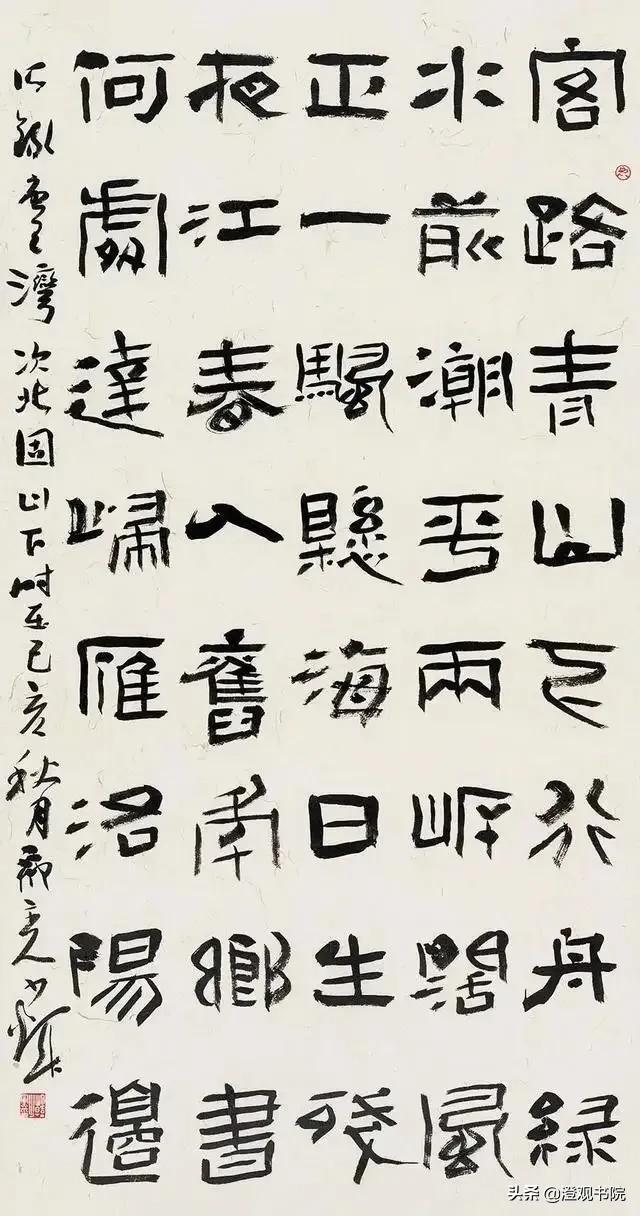 客路青山下行舟綠
水前潮平兩岸闊風
正一颿懸海日生殘
夜江春入舊年鄉書
何處達歸雁洛陽邊
錄唐王灣次北固山下時在己亥秋月
头条 @澄观书院